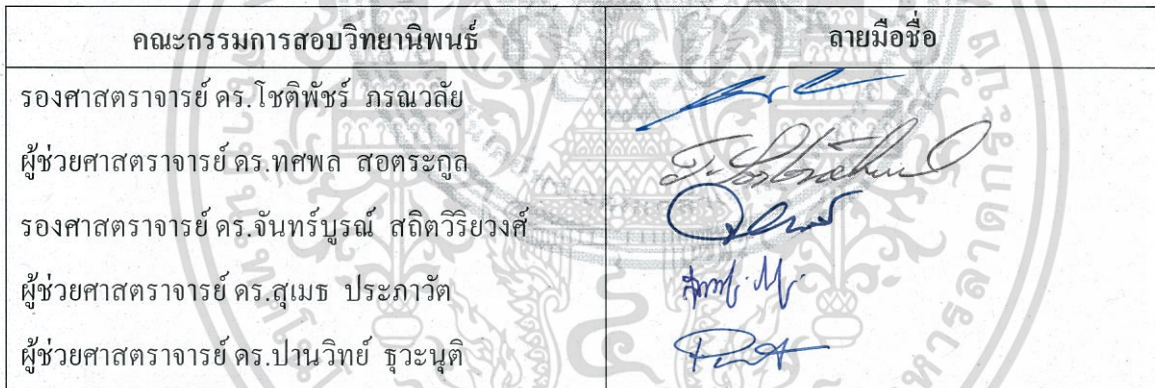 คณะกรรมการสอบวิทยานิพนธ์ ลายมือชื่อ
รองศาสตราจารย์ ดร.โชติพัชร์ ภรณวลัย
ผู้ช่วยศาสตราจารย์ ดร.ทศพล สอตระกูล
รองศาสตราจารย์ ดร.จันทร์บูรณ์ สถิตวิริยวงศ์
ผู้ช่วยศาสตราจารย์ ดร.สุเมธ ประภาวัต
ผู้ช่วยศาสตราจารย์ ดร.ปานวิทย์ ธุวะนุติ